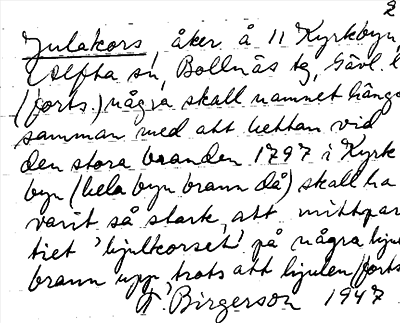 2
Julakors, åker å 11 Kyrkbyn,
Alfta sn, Bollnäs tg, Gävl. l
(forts.) några skall namnet hänga
samman med att hettan vid
den stora branden 1797 i Kyrk
byn (hela byn brann då) skall ha
varit så stark, att mittpar
tiet 'hjulkorset' på några hjul
brann upp, trots att hjulen (forts
F. Birgerson 1947